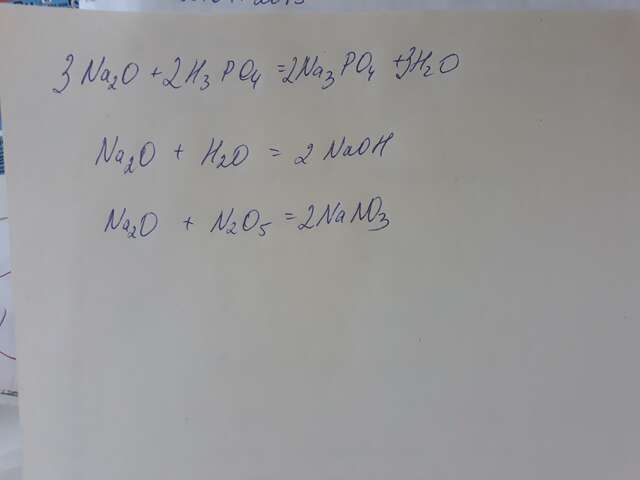 3Na₂O + 2H₃PO₄ = 2Na₃PO₄ + 3H₂O
Na₂O + H₂O = 2NaOH
Na₂O + N₂O₅ = 2NaNO₃